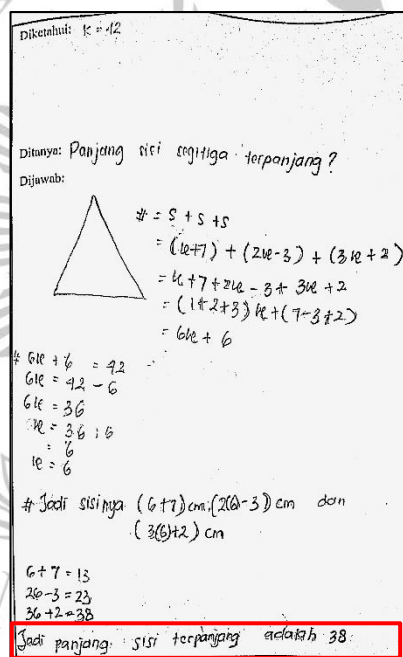 Diketahui: k = 42
Ditanya: Panjang sisi segitiga terpanjang?
Dijawab:
# = S + S + S
= (k+7) + (2k-3) + (3k+2)
= k+7+2k-3+3k+2
= (1+2+3)k+(7-3+2)
= 6k + 6
# 6k + 6 = 42
6k = 42 - 6
6k = 36
k = 36 : 6
= 6
k = 6
# Jadi sisinya (6+7) cm; (2(6)-3) cm dan
(3(6)+2) cm
6+7 = 13
26-3 = 23
36+2 = 38
Jadi panjang sisi terpanjang adalah 38.